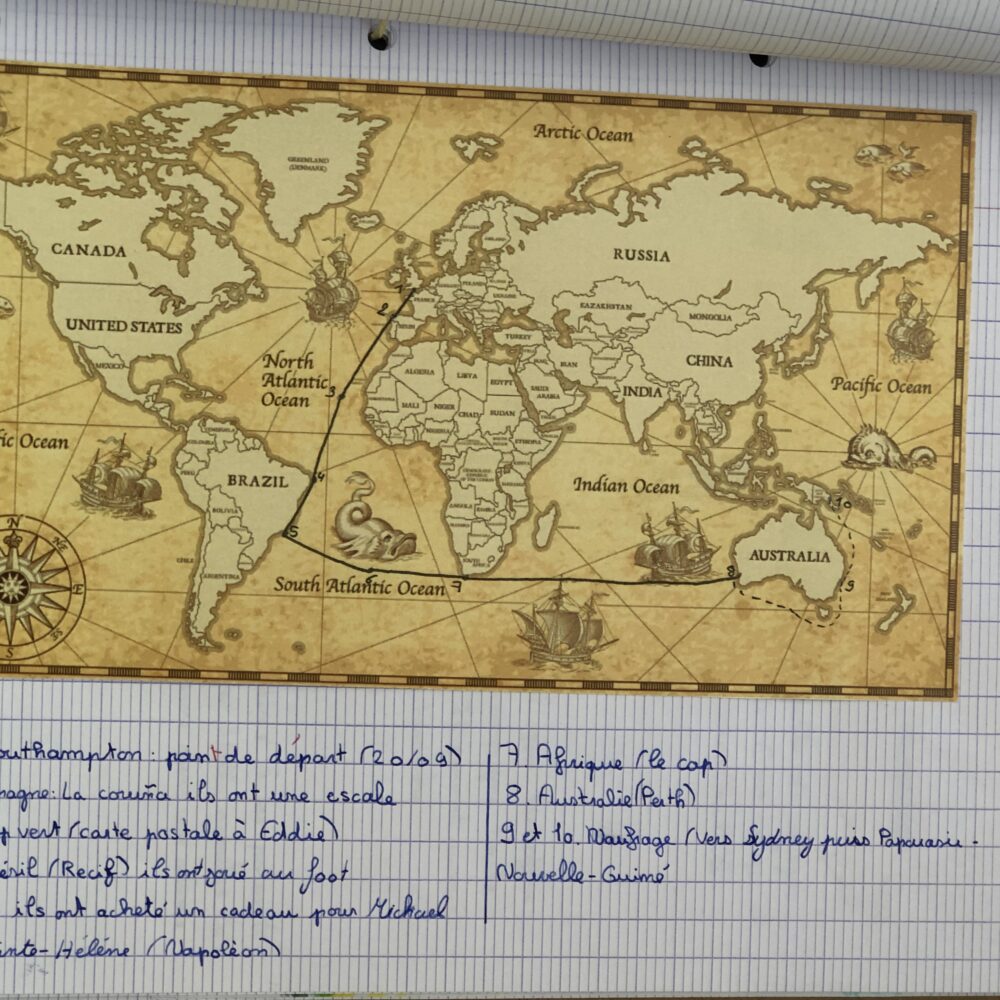 Arctic Ocean
GREENLAND
(DENMARK)
CANADA
RUSSIA
UNITED STATES
MEXICO
North
Atlantic
Ocean
FRANCE
SPAIN
UKRAINE
KAZAKHSTAN
MONGOLIA
TURKEY
CHINA
IRAN
INDIA
Pacific Ocean
ALGERIA
LIBYA
EGYPT
SAUDI
ARABIA
MALI
NIGER
CHAD
SUDAN
NIGERIA
ETHIOPIA
ic Ocean
VENEZUELA
COLOMBIA
PERU
BRAZIL
BOLIVIA
CHILE
ARGENTINA
ANGOLA
ZAMBIA
NAMIBIA
SOUTH AFRICA
Indian Ocean
AUSTRALIA
South Atlantic Ocean
N
NE
E
SE
S
1
2
3
4
5
6
7
8
9
10
outhampton : point de départ (20/09)
pagne : La coruña ils ont une escale
p vert (carte postale à Eddie)
ésil (Recif) ils ont joué au foot
ils ont acheté un cadeau pour Michael
inte-Hélène (Napoléon)
7. Afrique (le cap)
8. Australie (Perth)
9 et 10. Naufrage (vers Sydney puis Papouasie-
Nouvelle-Guiné